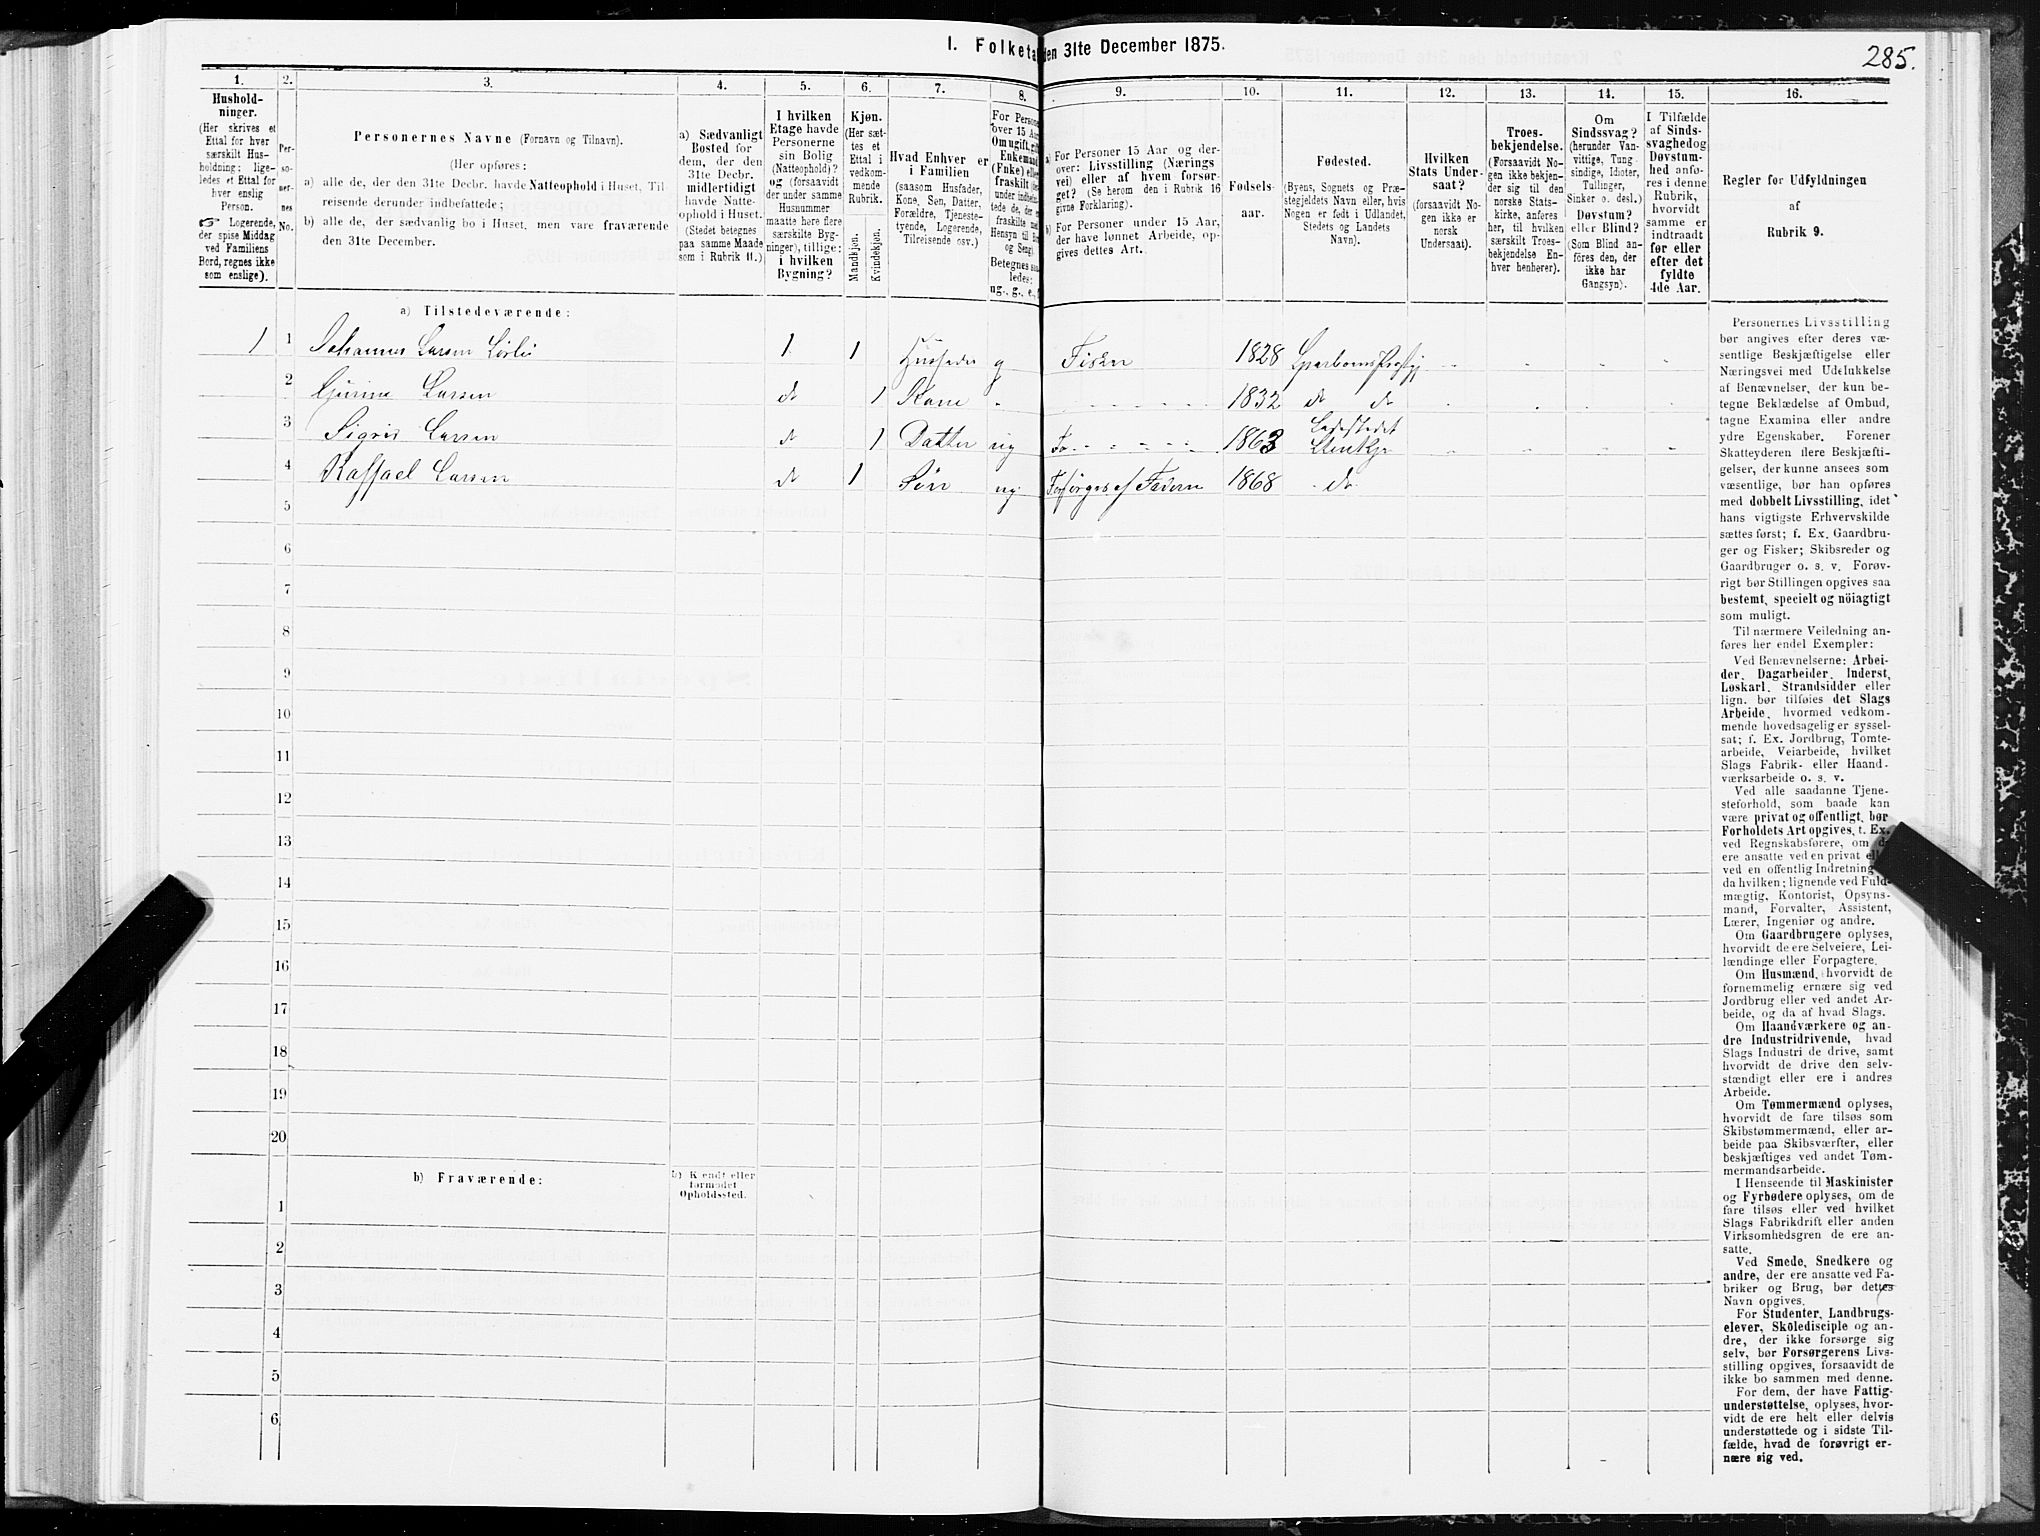 285.
1. Folketa den 31te December 1875.
1. 2. 3. 4. 5. 6. 7. 8. 9. 10. 11. 12. 13. 14. 15. 16.
Hushold-
ninger.
(Her skrives et
Ettal for hver
særskilt Hus-
holdning; lige-
ledes et Ettal for
hver enslig
Person.
☞ Logerende,
der spise Middag
ved Familiens
Bord, regnes ikke
som enslige).
Per-
so-
ner-
nes
No.
Personernes Navne (Fornavn og Tilnavn).
(Her opføres:
a) alle de, der den 31te Decbr. havde Natteophold i Huset, Til-
reisende derunder indbefattede;
b) alle de, der sædvanlig bo i Huset, men vare fraværende
den 31te December.
a) Sædvanligt
Bosted for
dem, der den
31te Decbr.
midlertidigt
havde Natte-
ophold i Huset.
(Stedet betegnes
paa samme Maade
som i Rubrik 11.)
I hvilken
Etage havde
Personerne
sin Bolig
(Natteophold)?
og (forsaavidt
der under samme
Husnummer
maatte høre flere
særskilte Byg-
ninger), tillige:
i hvilken
Bygning?
Kjøn.
(Her sæt-
tes et
Ettal i
vedkom-
mende
Rubrik.
Mandkjøn.
Kvindekjøn.
Hvad Enhver er
i Familien
(saasom Husfader,
Kone, Søn, Datter,
Forældre, Tjeneste-
tyende, Logerende,
Tilreisende osv.)
For Persone
over 15 Aar
Om ugift, gift
Enkemand
(Enke) eller
fraskilt
og Seng).
Betegnes saa-
ledes:
ug., g., e.,
a) For Personer 15 Aar og der-
over: Livsstilling (Nærings
vei) eller af hvem forsør-
get? (Se herom den i Rubrik 16
givne Forklaring).
b) For Personer under 15 Aar,
der have lønnet Arbeide, op-
gives dettes Art.
Fødsels-
aar.
Fødested.
(Byens, Sognets og Præ-
stegjeldets Navn eller, hvis
Nogen er født i Udlandet,
Stedets og Landets
Navn).
Hvilken
Stats Under-
saat?
(forsaavidt No-
gen ikke er
norsk
Undersaat).
Troes-
bekjendelse.
(Forsaavidt No-
gen ikke bekjen-
der sig til den
norske Stats-
kirke, anføres
her, til hvilken
særskilt Troes-
bekjendelse En-
hver henhører).
Om
Sindssvag?
(herunder Van-
vittige, Tung-
sindige, Idioter,
Tullinger,
Sinker o. desl.)
Døvstum?
eller Blind?
(Som Blind an-
føres den, der
ikke har
Gangsyn).
I Tilfælde
af Sinds-
svaghed og
Døvstum-
hed anfø-
res i denne
Rubrik,
hvorvidt
samme er
indtraadt
før eller
efter det
fyldte
4de Aar.
Regler for Udfyldningen
af
Rubrik 9.
a) Tilstedeværende:
1 1 Johannes Larsen 1 1 Husfader g Fisker 1828
2 Gurine Larsen do 1 Kone 1832 do do
3 Sigrid Larsen do 1 Datter ug 1863 Ladestedet
Stenkjær
4 Raffael Larsen do 1 Søn ug Forsørges af Faderen 1868 do
5
6
7
8
9
10
11
12
13
14
15
16
17
18
19
20
b) Fraværende:
b) Kjendt eller
formodet
Opholdssted.
1
2
3
4
5
6
Personernes Livsstilling
bør angives efter deres væ-
sentlige Beskjæftigelse eller
Næringsvei med Udelukkelse
af Benævnelser, der kun be-
tegne Beklædelse af Ombud,
tagne Examina eller andre
ydre Egenskaber. Forener
Skatteyderen flere Beskjæfti-
gelser, der kunne ansees som
væsentlige, bør han opføres
med dobbelt Livsstilling, idet
hans vigtigste Erhvervskilde
sættes først; f. Ex. Gaardbru-
ger og Fisker; Skibsreder og
Gaardbruger o. s. v. Forøv-
rigt bør Stillingen opgives saa
bestemt, specielt og nöiagtigt
som muligt.
Til nærmere Veiledning an-
føres her endel Exempler:
Ved Benævnelserne: Arbei-
der, Dagarbeider, Inderst,
Løskarl, Strandsidder eller
lign. bør tilføies det Slags
Arbeide, hvormed vedkom-
mende hovedsagelig er syssel-
sat; f. Ex. Jordbrug, Tomte-
arbeide, Veiarbeide, hvilket
Slags Fabrik- eller Haand-
værksarbeide o. s. v.
Ved alle saadanne Tjene-
steforhold, som baade kan
være privat og offentligt, bør
Forholdets Art opgives, t. Ex.
ved Regnskabsførere, om
ere ansatte ved en privat
ved en offentlig Indretning
da hvilken; lignende ved Fuld-
mægtig, Kontorist, Opsyns-
mand, Forvalter, Assistent,
Lærer, Ingeniør og andre.
Om Gaardbrugere oplyses,
hvorvidt de ere Selveiere, Lei-
lændinge eller Forpagtere.
Om Husmænd, hvorvidt de
fornemmelig ernære sig ved
Jordbrug eller ved andet Ar-
beide, og da af hvad Slags.
Om Haandværkere og an-
dre Industridrivende, hvad
Slags Industri de drive, samt
hvorvidt de drive den selv-
stændigt eller ere i andres
Arbeide.
Om Tømmermænd oplyses,
hvorvidt de fare tilsøs som
Skibstømmermænd, eller ar-
beide paa Skibsværfter, eller
beskjæftiges ved andet Tøm-
mermandsarbeide.
I Henseende til Maskinister
og Fyrbødere oplyses, om de
fare tilsøs eller ved hvilket
Slags Fabrikdrift eller anden
Virksomhedsgren de ere an-
satte.
Ved Smede, Snedkere og
andre, der ere ansatte ved Fa-
briker og Brug, bør dettes
Navn opgives.
For Studenter, Landbrugs-
elever, Skoledisciple og an-
dre, der ikke forsørge sig
selv, bør Forsørgerens Livs-
stilling opgives, forsaavidt de
ikke bo sammen med denne.
For dem, der have Fattig-
understøttelse, oplyses, hvor-
vidt de ere helt eller delvis
understøttede og i sidste Til-
fælde, hvad de forøvrigt er-
nære sig ved.